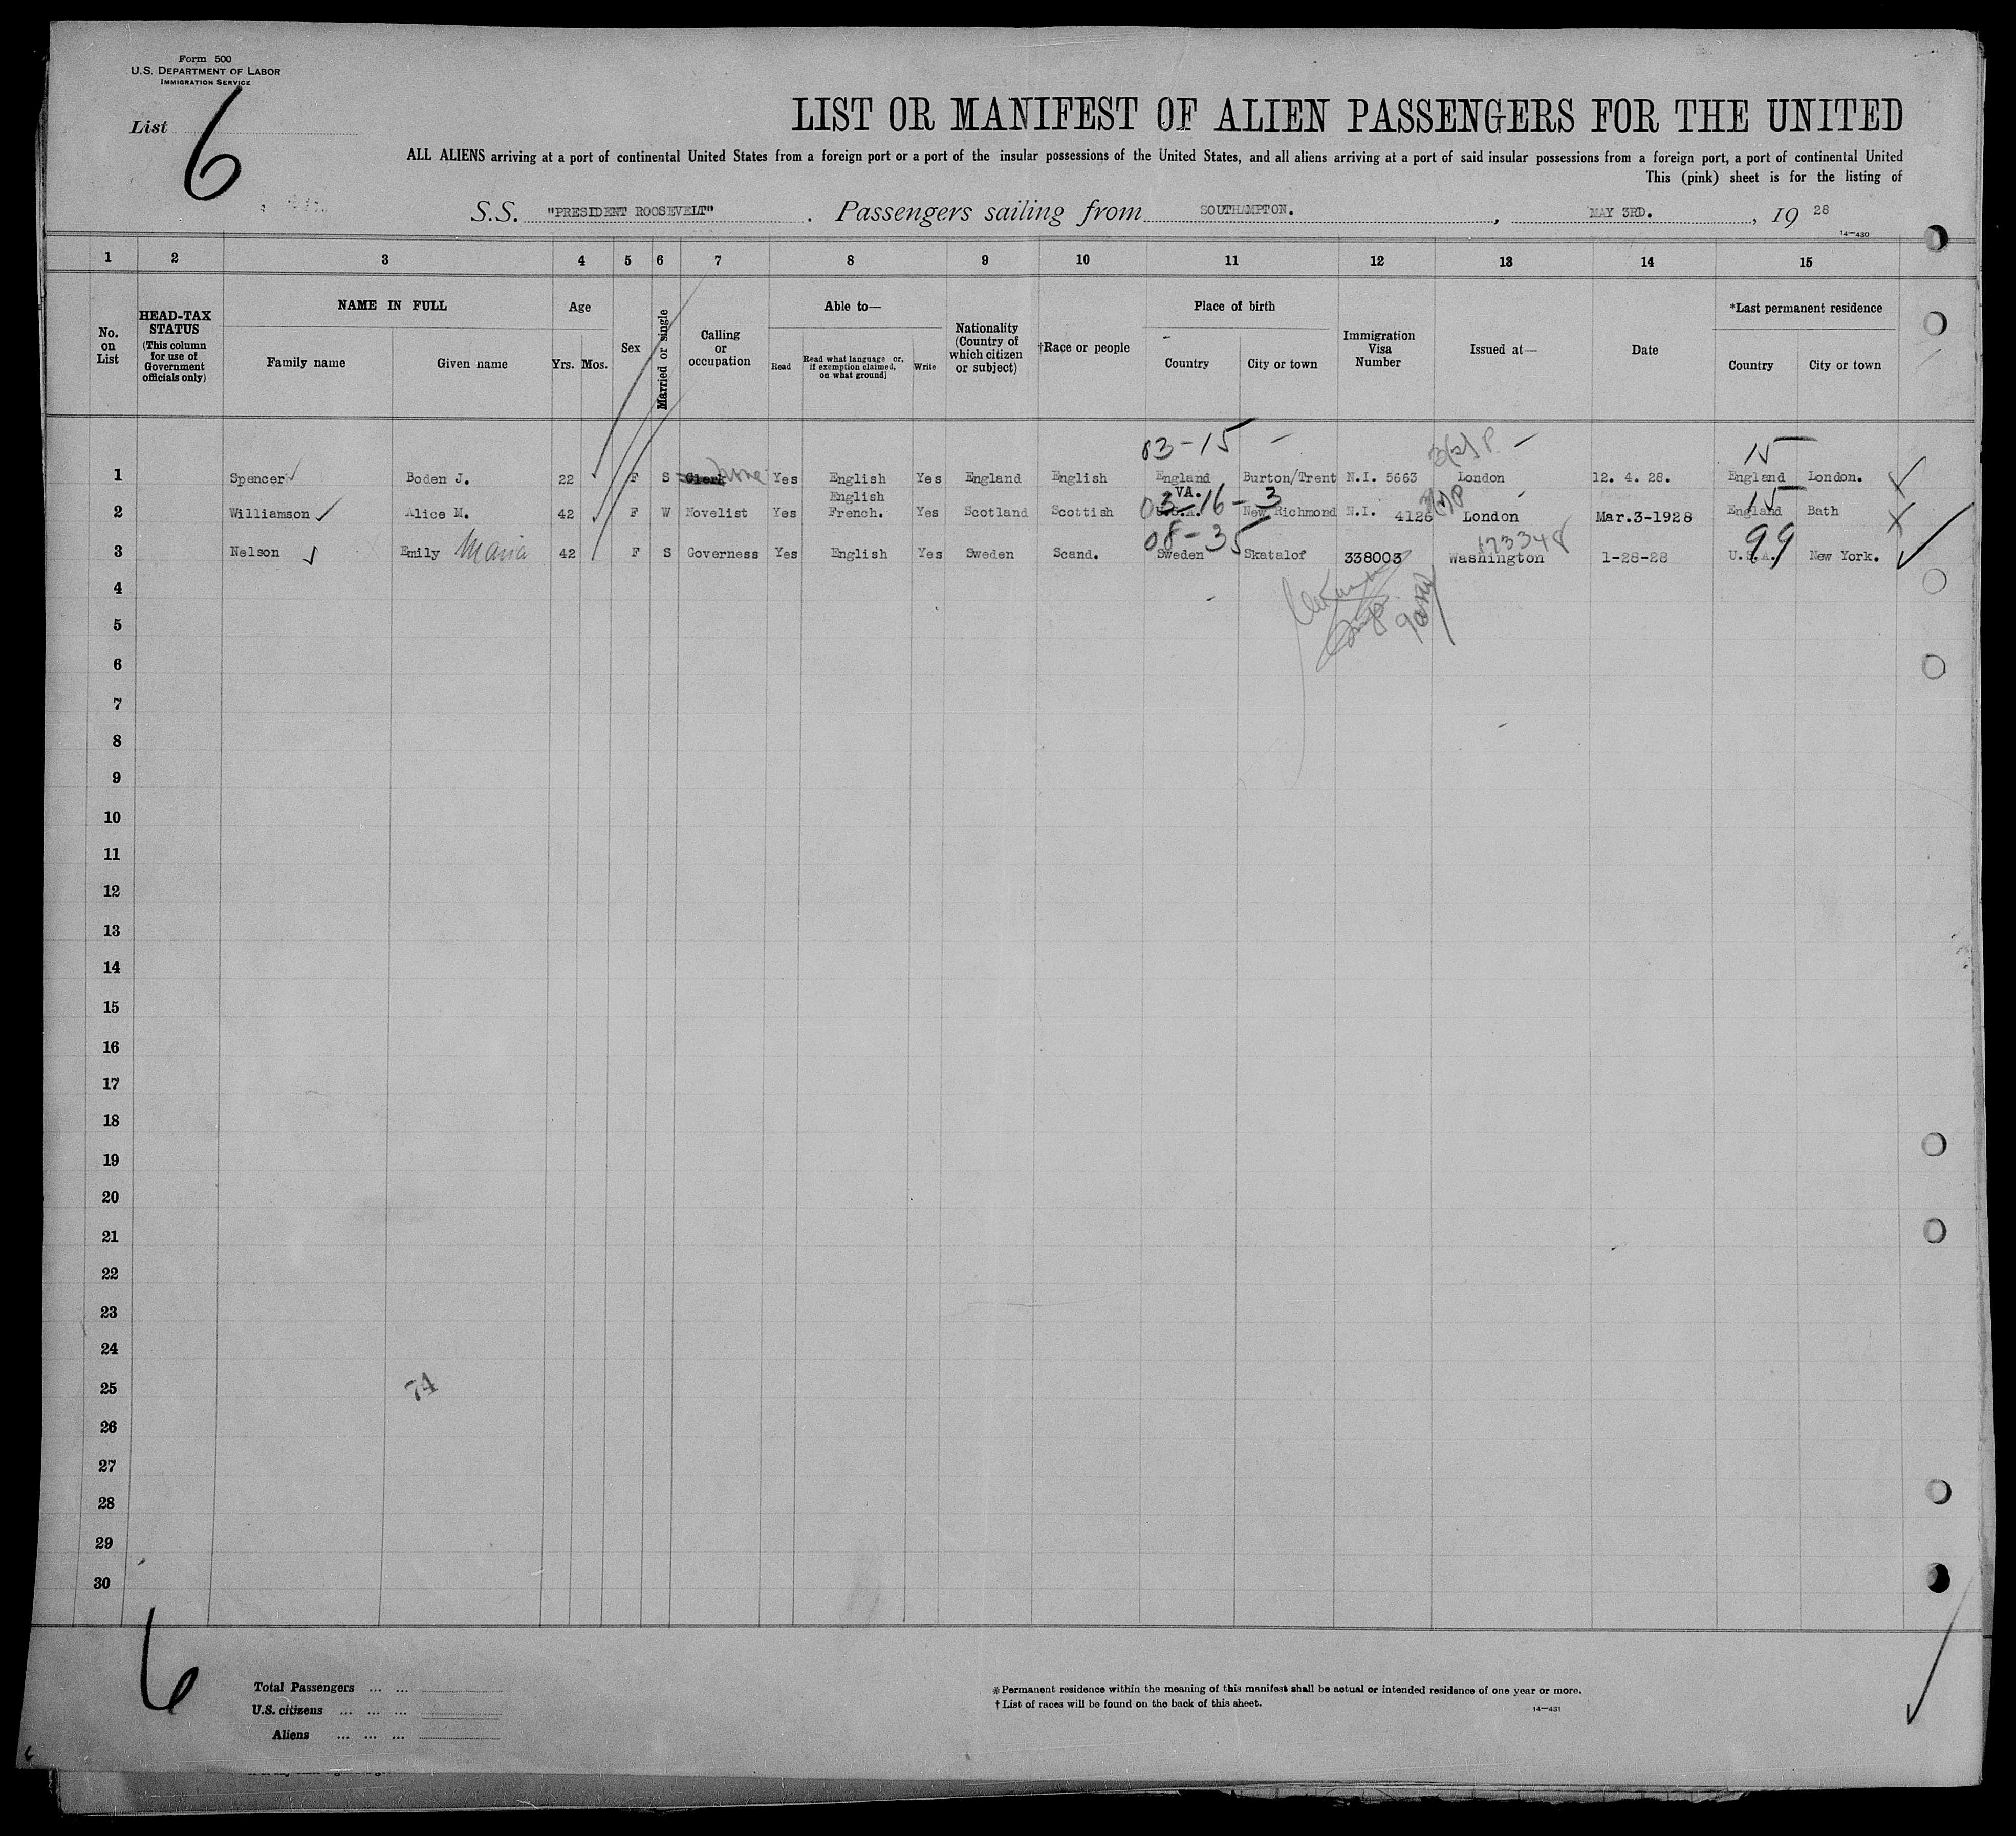 Form 500
U.S. DEPARTMENT OF LABOR
IMMIGRATION SERVICE
List 6
LIST OR MANIFEST OF ALIEN PASSENGERS FOR THE UNITED
ALL ALIENS arriving at a port of continental United States from a foreign port or a port of the insular possessions of the United States, and all aliens arriving at a port of said insular possessions from a foreign port, a port of continental United
This (pink) sheet is for the listing of
S.S. "PRESIDENT ROOSEVELT" . Passengers sailing from SOUTHAMPTON. , MAY 3RD. , 19 28
14—430
1 2 3 4 5 6 7 8 9 10 11 12 13 14 15
No. on List
HEAD-TAX STATUS (This column for use of Government officials only)
NAME IN FULL
Family name Given name
Age
Yrs. Mos.
Sex
Married or single
Calling or occupation
Able to—
Read Read what language or, if exemption claimed, on what ground] Write
Nationality (Country of which citizen or subject)
†Race or people
Place of birth
Country City or town
Immigration Visa Number
Issued at—
Date
*Last permanent residence
Country City or town
03-15 – 15
1 Spencer Boden J. 22 F S Clerk Yes English Yes England English England Burton/Trent N.I. 5663 London 12. 4. 28. England London.
English VA. 03-16-3 15
2 Williamson Alice M. 42 F W Novelist Yes French. Yes Scotland Scottish U.S.A. New Richmond N.I. 4126 London Mar.3-1928 England Bath
08-35 173348 99
3 Nelson Emily Maria 42 F S Governess Yes English Yes Sweden Scand. Sweden Skatalof 338003 Washington 1-28-28 U.S.A. New York.
4
5
6
7
8
9
10
11
12
13
14
15
16
17
18
19
20
21
22
23
24
25 74
26
27
28
29
30
6
Total Passengers ... ...
U.S. citizens ... ... ...
Aliens ... ... ...
*Permanent residence within the meaning of this manifest shall be actual or intended residence of one year or more.
†List of races will be found on the back of this sheet.
14—431